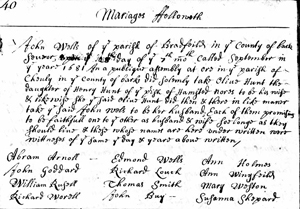 40
Mariages ffolloweth
John Wells of ye parish of Bradfeild in ye County of
day of ye mo. Called September in
ye year 1681 In a publique assembly at ors in ye parish of
in ye County of barks did Solemly take Olive Hunt the
daughter of Henry Hunt of ye Psh of Hamsted Noris to be his wife
& likewise she ye said Olive Hunt did then & there in like manner
take ye said John Wells to be her husband Each of them promising
to be faithfull one to ye other as husband & wife so long as they
Should live & these whose names are here under written were
witnesses of ye same ye day & years above written
Abram Arnoll Edmond Wells Ann Holmes
John Goddard Richard Ann Wingfeild
William Rusell Thomas Smith Mary Weston
Richard John Bay Susanna Shepard